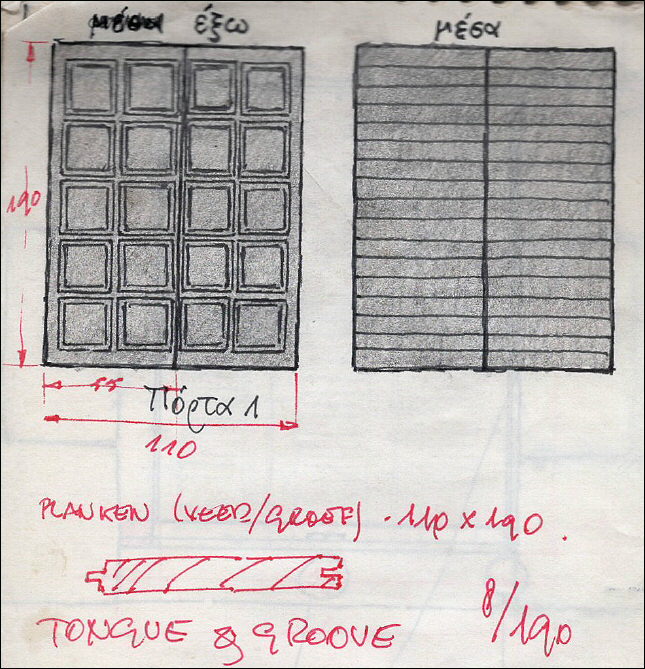 έξω
μέσα
190
55
Πόρτα 1
110
PLANKEN (VEER/GROEF) · 110 x 190.
TONGUE & GROOVE
8/190